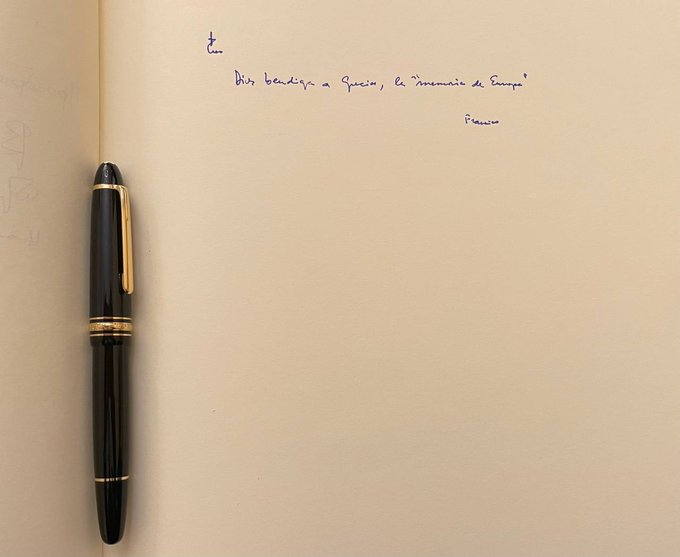 Dios bendiga a Grecia, la "memoria de Europa"
Francisco